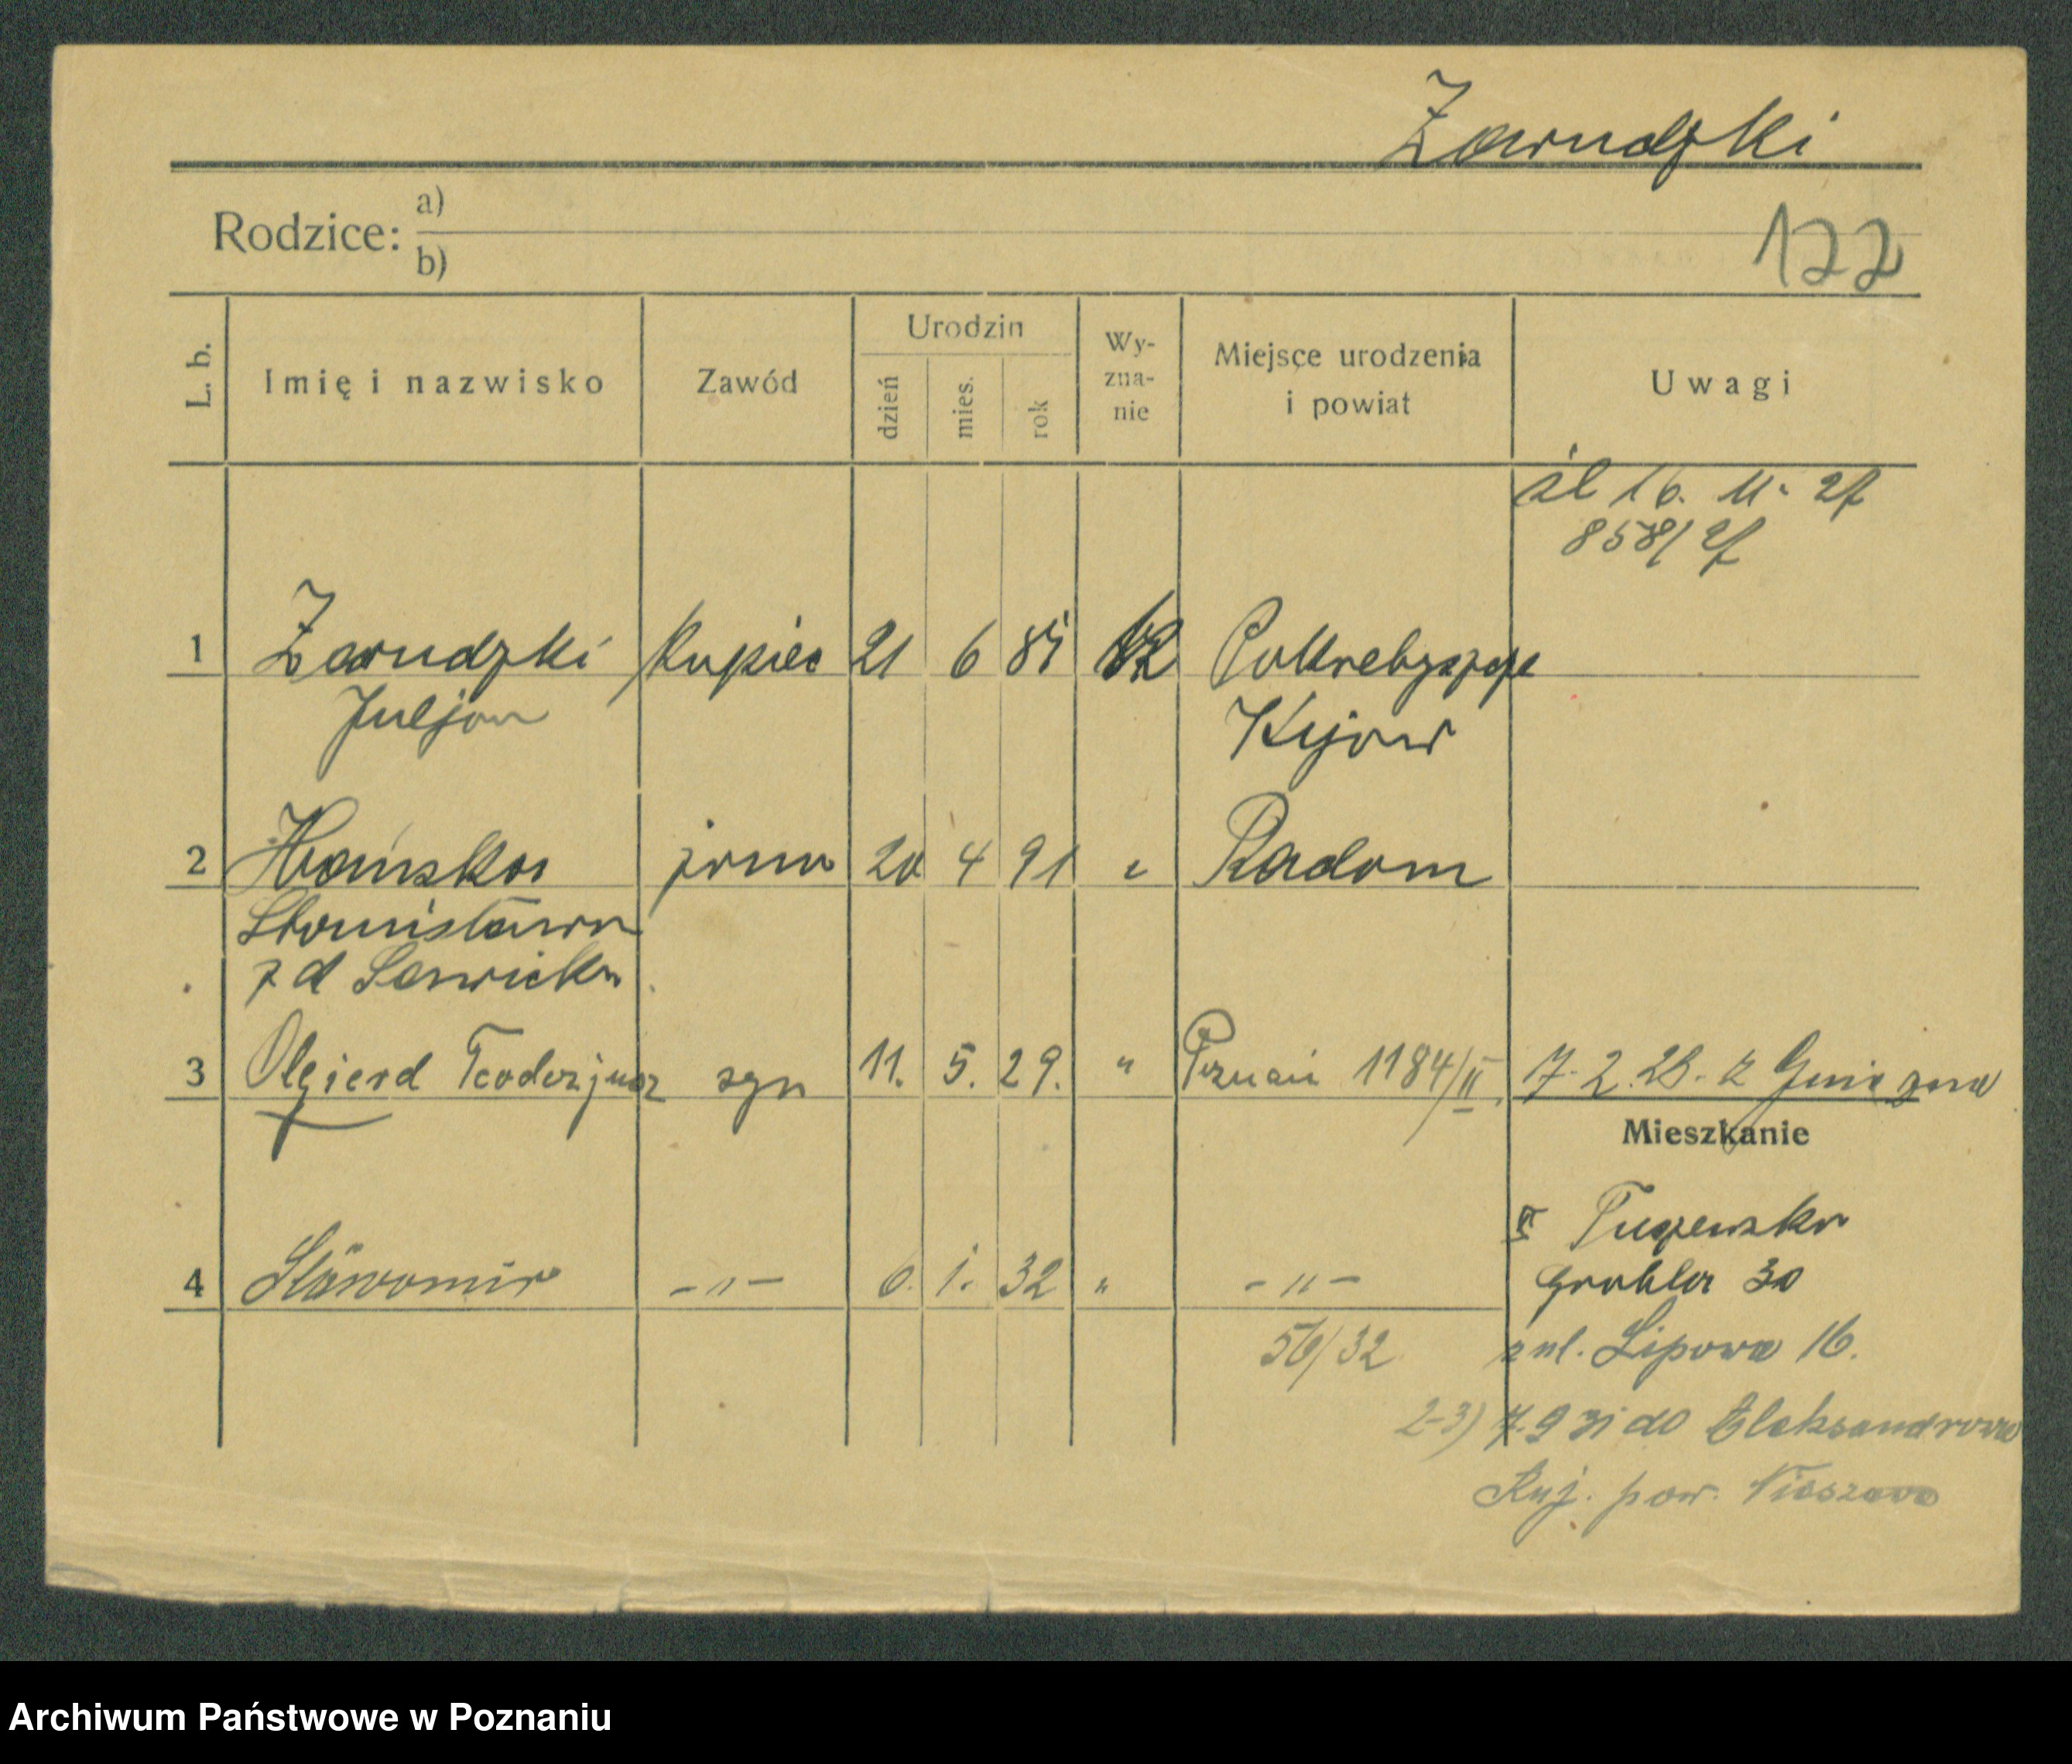 Zarudzki
Rodzice: a)
b)
122
L. b.
Imię i nazwisko
Zawód
Urodzin
dzień
mies.
rok
Wy-
zna-
nie
Miejsce urodzenia
i powiat
Uwagi
śl 16. 11. 27
858/27
1 Zarudzki kupiec 21 6 85
Juljan
Kijow
2 żona 20 4 91 " Radom
Stanisława
z d Sawicka
3 Olgierd Teodozjusz syn 11. 5. 29. " Poznań 1184/II. 17. 2. 28. z Gniezna
Mieszkanie
4 Sławomir -"- 6. 1. 32 " -"-
56/32
VI
Grobla 30
z ul. Lipowa 16.
2-3) 7. 9 31 do Aleksandrowa
Kuj. pow. Nieszawa
Archiwum Państwowe w Poznaniu